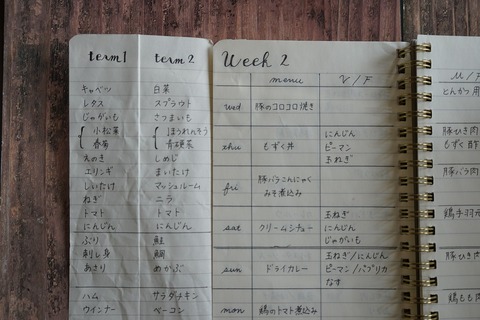 term1 term2
キャベツ 白菜
レタス スプラウト
じゃがいも さつまいも
小松菜 ほうれんそう
春菊 青梗菜
えのき しめじ
エリンギ まいたけ
しいたけ マッシュルーム
ねぎ ニラ
トマト トマト
にんじん にんじん
ぶり 鮭
刺し身 鯛
あさり めかぶ
ハム サラダチキン
ウインナー ベーコン
Week 2
menu V/F
wed 豚のコロコロ焼き
thu もずく丼 にんじん
ピーマン
玉ねぎ
fri 豚バラこんにゃく
みそ煮込み
sat クリームシチュー 玉ねぎ
にんじん
じゃがいも
sun ドライカレー 玉ねぎ/にんじん
ピーマン/パプリカ
なす
mon 鶏のトマト煮込み
M/F
とんかつ用
豚ひき肉
もずく酢
豚バラ肉
鶏手羽元
豚ひき肉
鶏もも肉